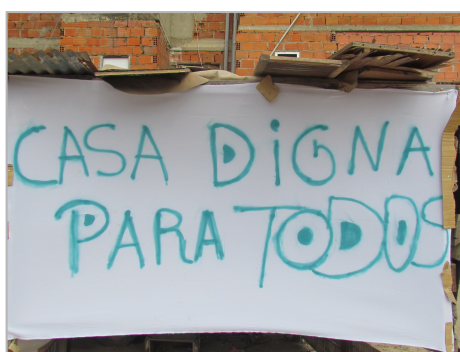 CASA DiGNA
PARA TODOS